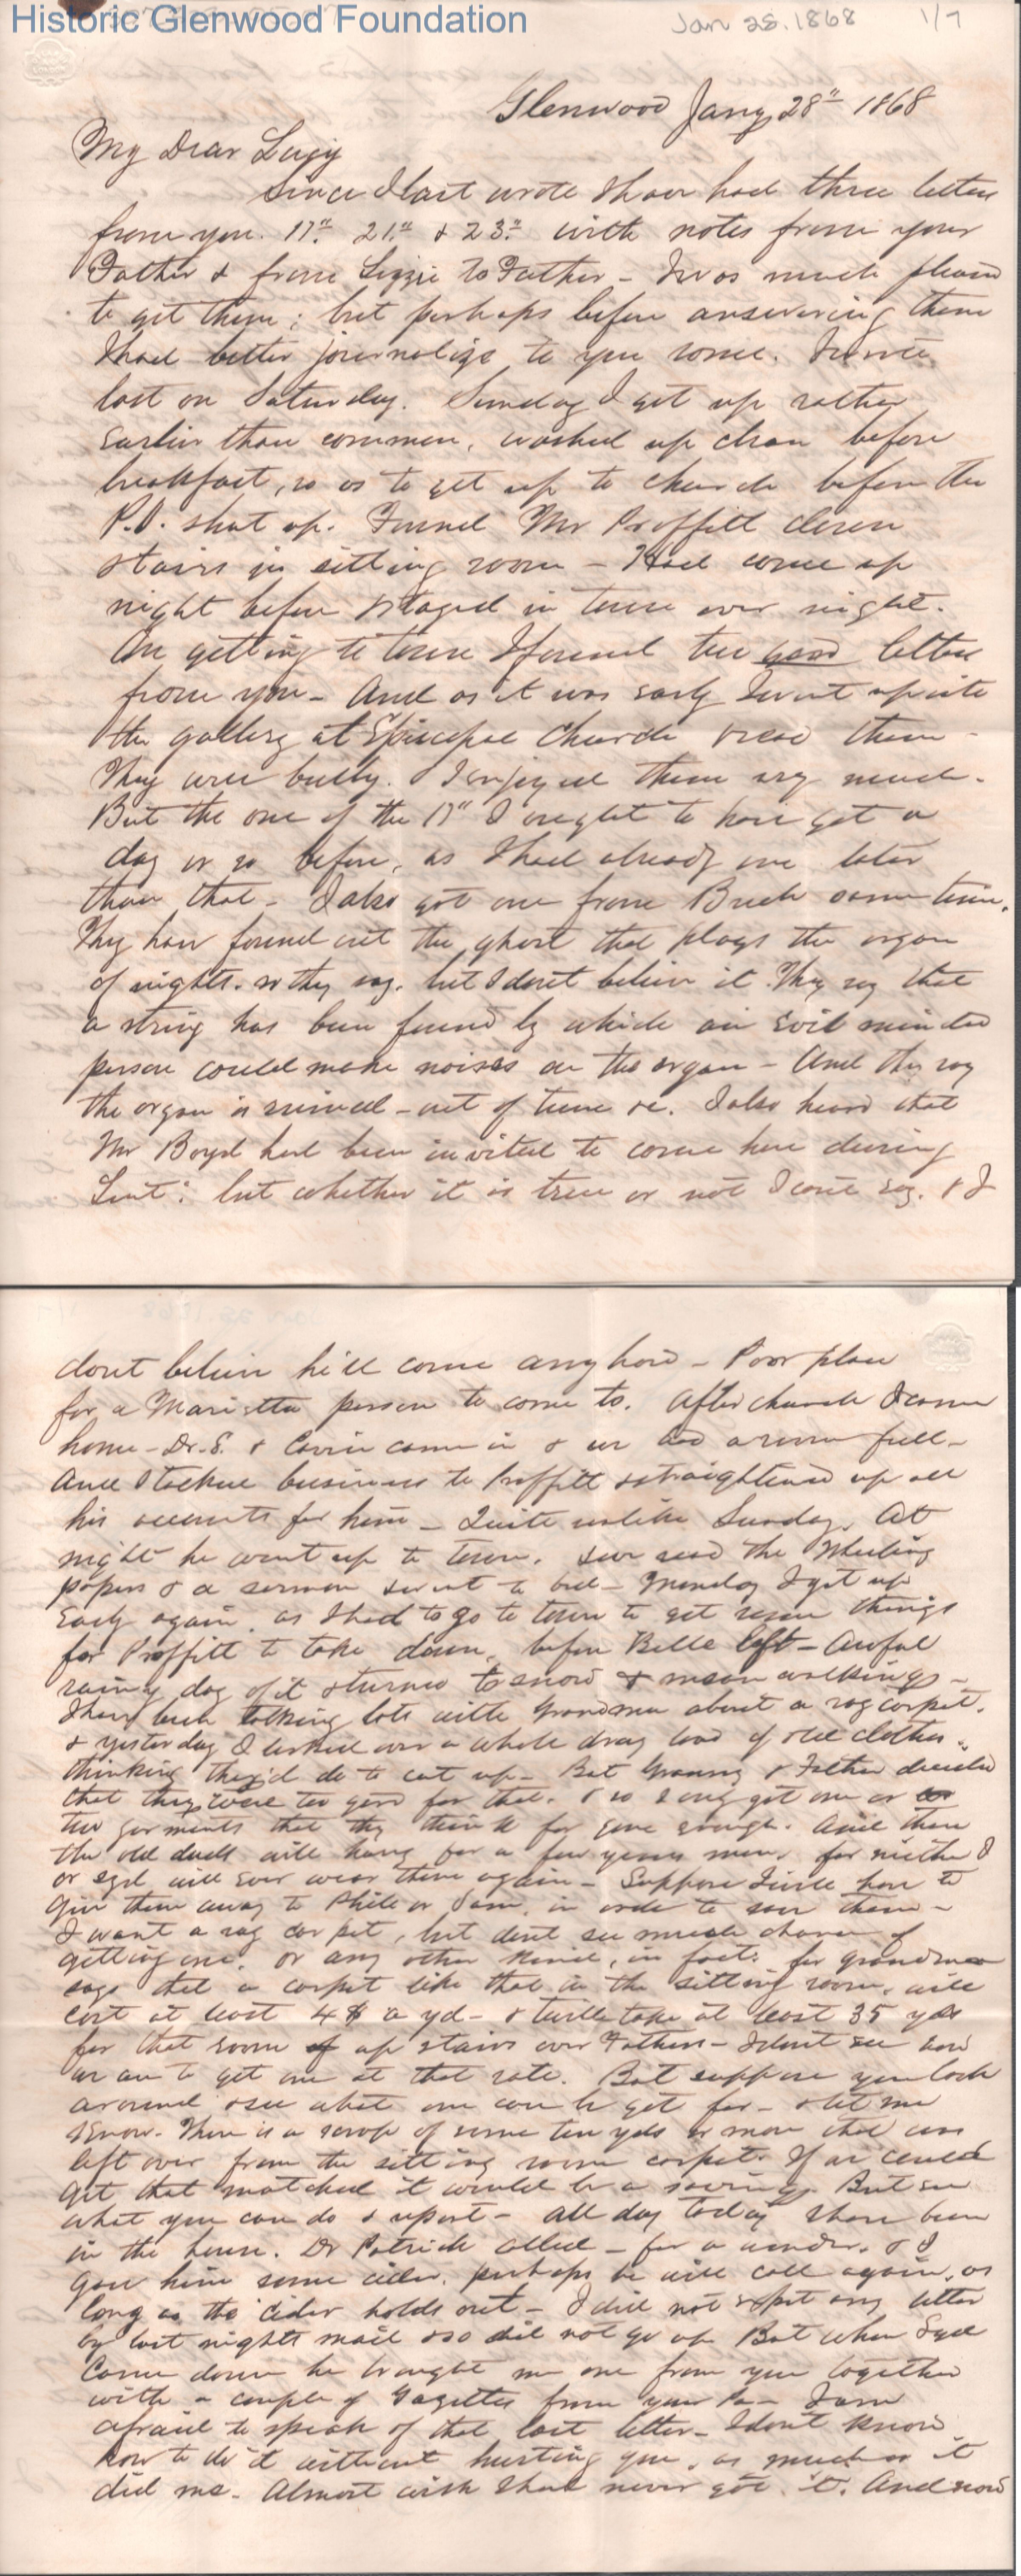 Historic Glenwood Foundation
Jan 28. 1868 1/7
Glenwood Jany 28" 1868
My Dear Lizzy
Since I last wrote I have had three letters
from you. 17" 21" & 23" with notes from your
Father & from Lizzie to Father - I was much pleased
to get them; but perhaps before answering them
I had better journalize to you some. I wrote
last on Saturday. Sunday I got up rather
earlier than common, washed up clean before
breakfast, so as to get up to church before the
P.O. shut up. Found Mr Proffitt down
stairs in sitting room - Had come up
night before & staged in town over night.
On getting to town I found two good letters
from you - And as it was early I went up into
the gallery at Episcopal Church & read them -
They were bully. I enjoyed them very much.
But the one of the 17" I ought to have got a
day or so before, as I had already one later
than that - I also got one from Buck same time.
They have found out the ghost that plays the organ
of nights. so they say. but I dont believe it. They say that
a string has been found by which an evil minded
person could make noises on the organ - And they say
the organ is ruined - out of tune &c. I also heard that
Mr Boyd had been invited to come here during
Lent: but whether it is true or not I cant say. & I
dont believe he'll come any how - Poor place
for a Marietta person to come to. After church I came
home - Dr. S. & Carrie came in & we had a room full -
And I talked business to Proffitt & straightened up all
his accounts for him - Quite unlike Sunday. At
night he went up to town. & we read the Wheeling
papers & a sermon & went to bed - Monday I got up
early again, as I had to go to town to get some things
for Proffitt to take down, before Belle left - Awful
rainy day of it & turned to snow & mean walking -
I have been talking lots with Grandma about a rag carpet.
& yesterday I looked over a whole dray load of old clothes.
thinking they'd do to cut up - But Granny & Father decided
that they were too good for that. & so I only got one or
two garments that they think far gone enough. And then
the old duds will hang for a few years more, for neither I
or syd will ever wear them again - Suppose I will have to
give them away to Phile or Sam, in order to save them -
I want a rag carpet, but dont see much chance of
getting one, or any other kind, in fact: for grandma
says that a carpet like that in the sitting room, will
cost at least 4$ a yd - & twill take at least 35 yds
for that room up stairs over Fathers - I dont see how
we are to get one at that rate. But suppose you look
around & see what one can be got for - & let me
know. There is a scrap of some ten yds or more that was
left over from the sitting room carpet. If we could
get that matched it would be a saving. But see
what you can do & report - All day today I have been
in the house. Dr Patrick called - for a wonder. & I
gave him some cider. perhaps he will call again, as
long as the cider holds out - I did not expect any letter
by last nights mail & so did not go up But when Syd
came down he brought me one from you together
with a couple of Gazettes from your Pa - I am
afraid to speak of that last letter - I dont know
how to do it without hurting you, as much as it
did me. Almost wish I had never got it. And now